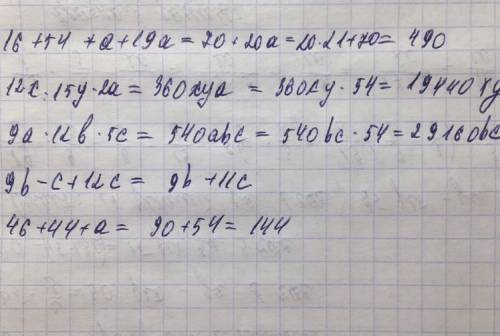 16 + 54 + a + 19a = 70 + 20a = 20·21+70= 490
12x · 15y · 2a = 360xya = 360xy · 54 = 19440xy
9a · 12b · 5c = 540abc = 540bc · 54 = 29160bc
9b - c + 12c = 9b + 11c
46 + 44 + a = 90 + 54 = 144